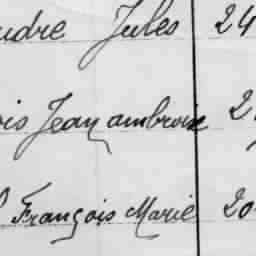 Jules 24
Jean ambroise 2
François Marie 20